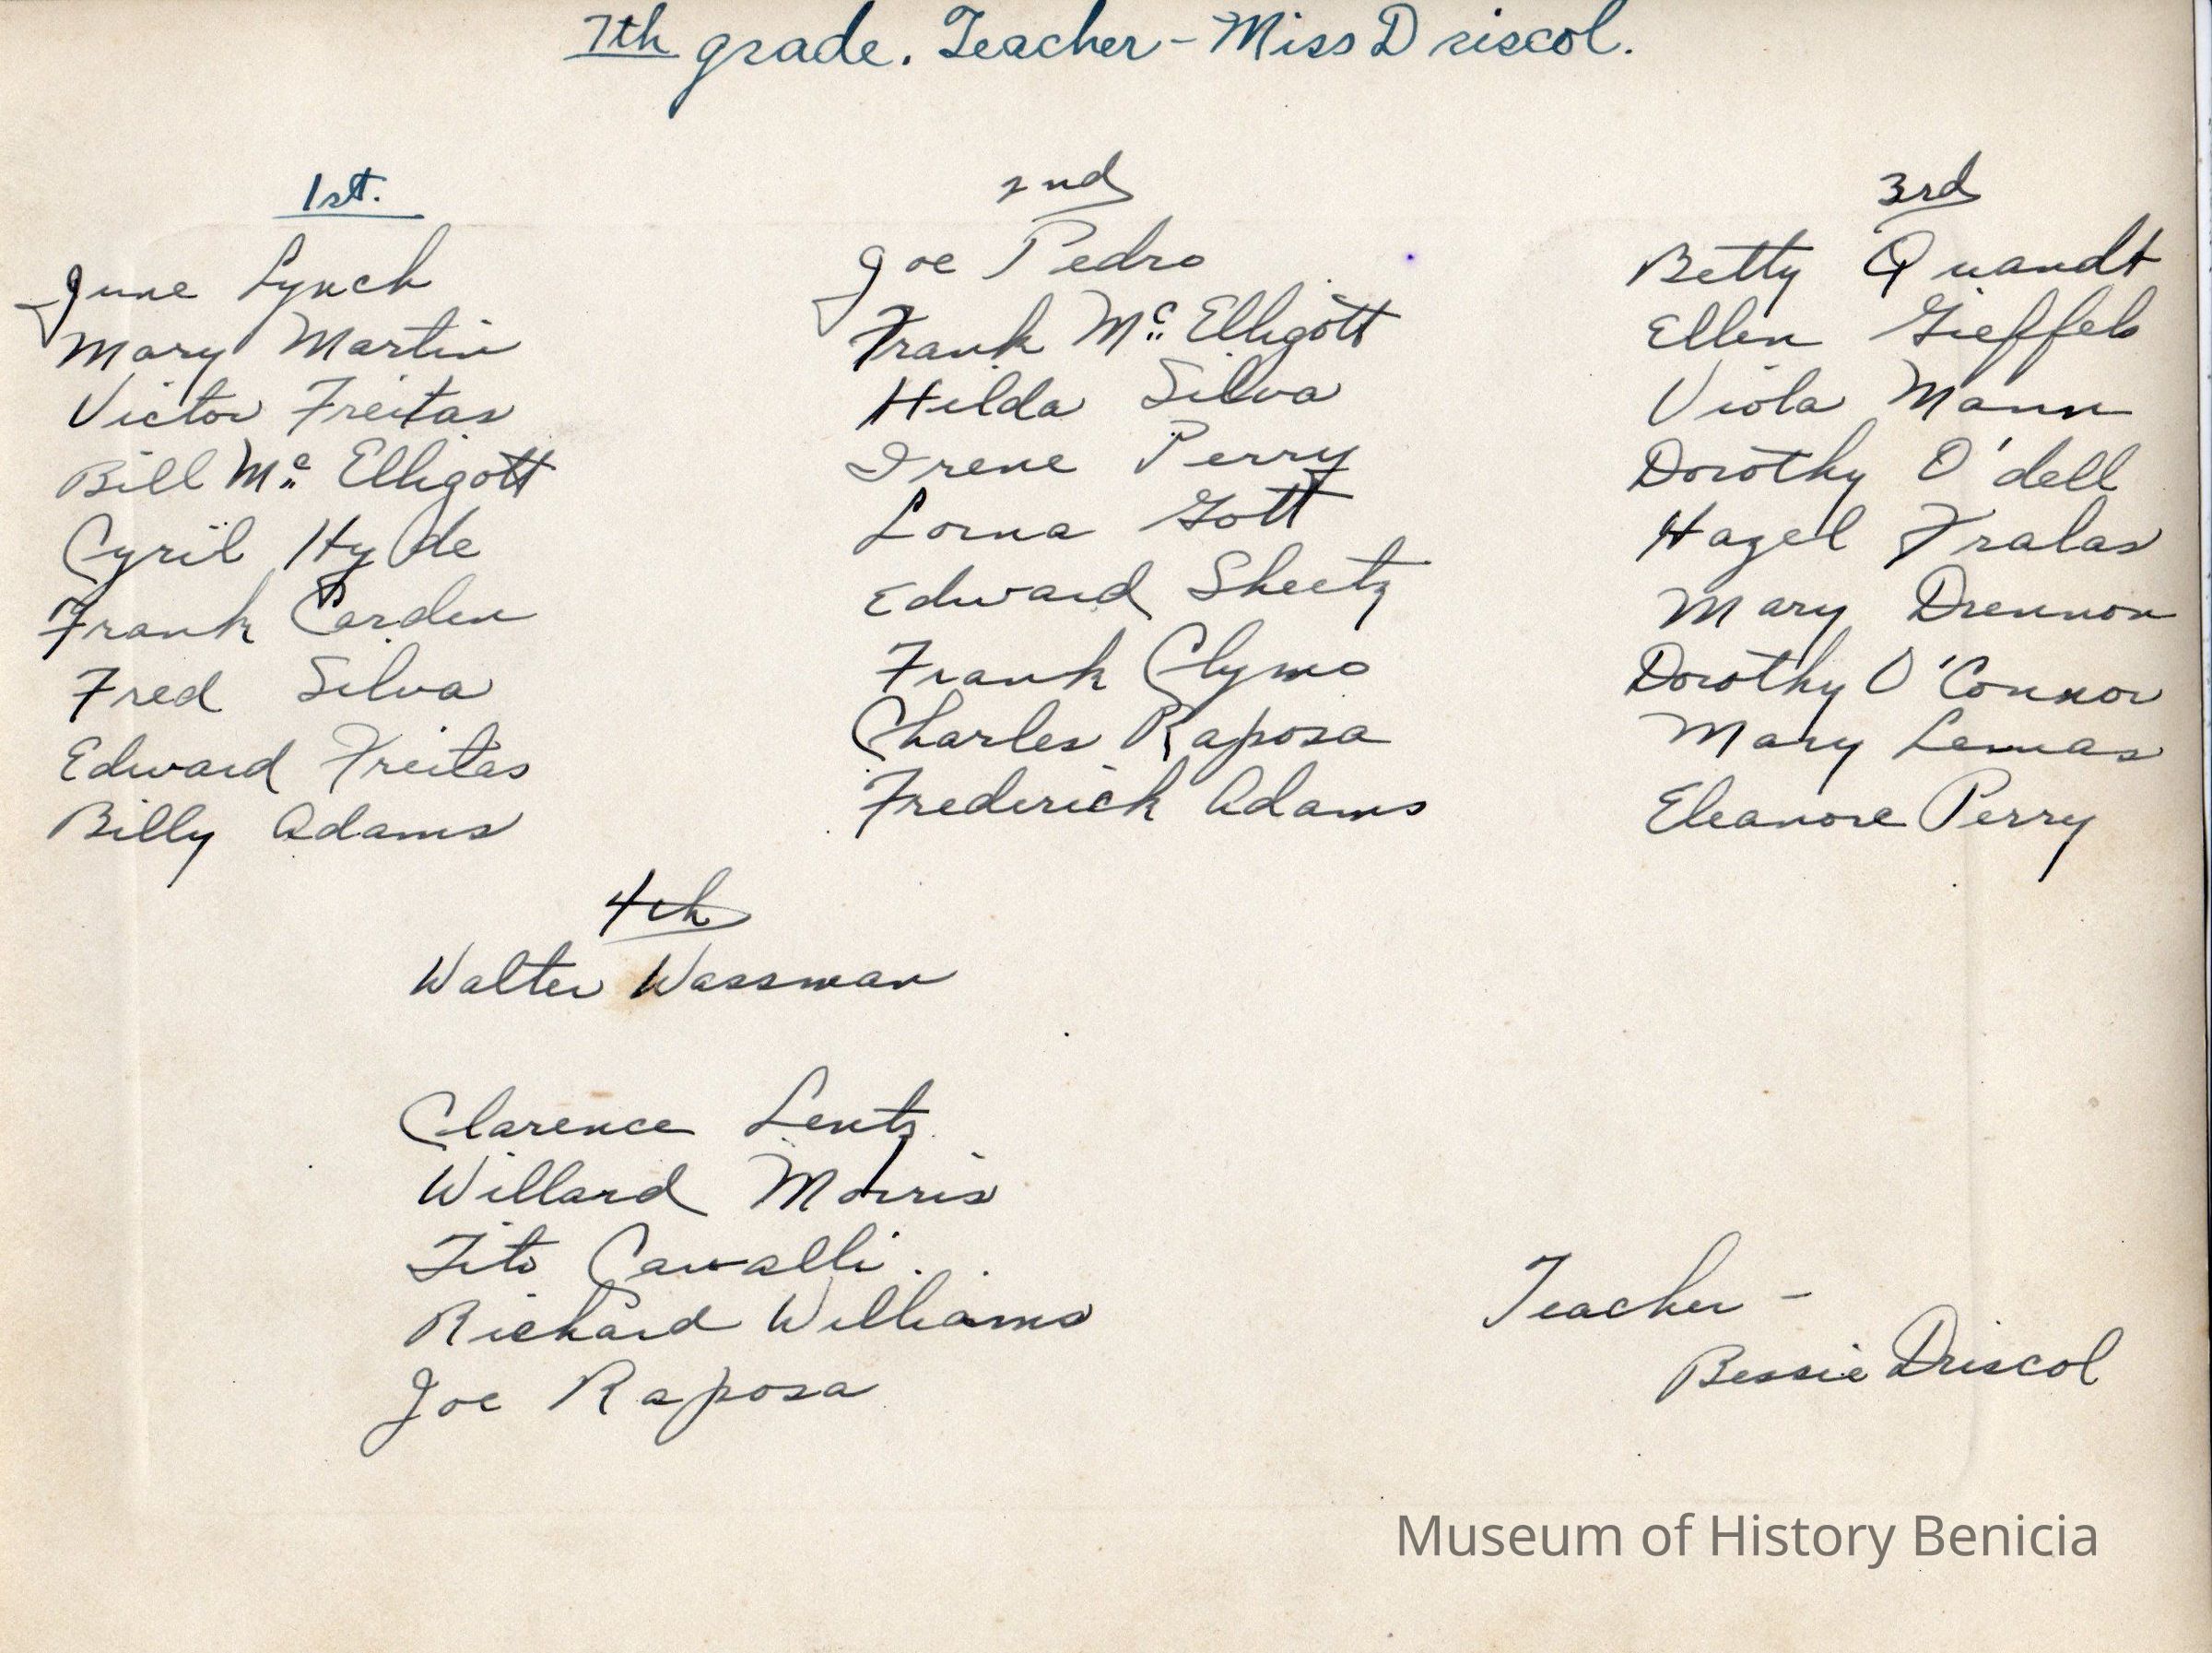 7th grade. Teacher - Miss Driscol.
1st.
June Lynch
Mary Martin
Victor Freitas
Bill Mc Elligott
Cyril Hyde
Frank Carden
Fred Silva
Edward Freitas
Billy Adams
2nd
Joe Pedro
Frank Mc Elligott
Hilda Silva
Irene Perry
Lorna Gott
Edward Sheetz
Frank Clymo
Charles Raposa
Frederick Adams
3rd
Betty Quandt
Ellen Gieffels
Viola Mann
Dorothy O'dell
Hazel Fralas
Mary Drennon
Dorothy O'Connor
Mary Lemas
Eleanore Perry
4th
Walter Wassman
Clarence Lentz
Willard Morris
Tito Cavalli.
Richard Williams
Joe Raposa
Teacher -
Bessie Driscol
Museum of History Benicia